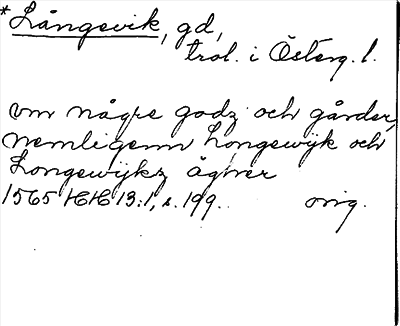 *Långsevik, gd,
trol. i Österg. l.
om någre godz och gårder,
nemligenn Longewijk och
Longewijkz ägher
1565 HH 13:1, s. 199. orig.